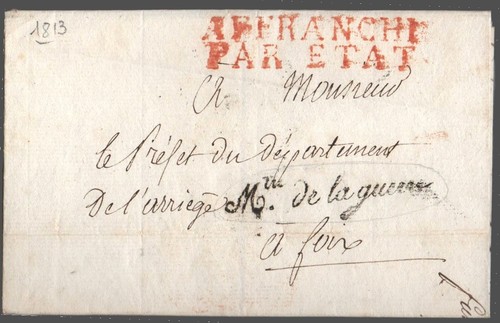 1813
AFFRANCHI
PAR ETAT
A Monsieur
le Préfet du département
De l'arriège
Mre. de la guerre
à foix